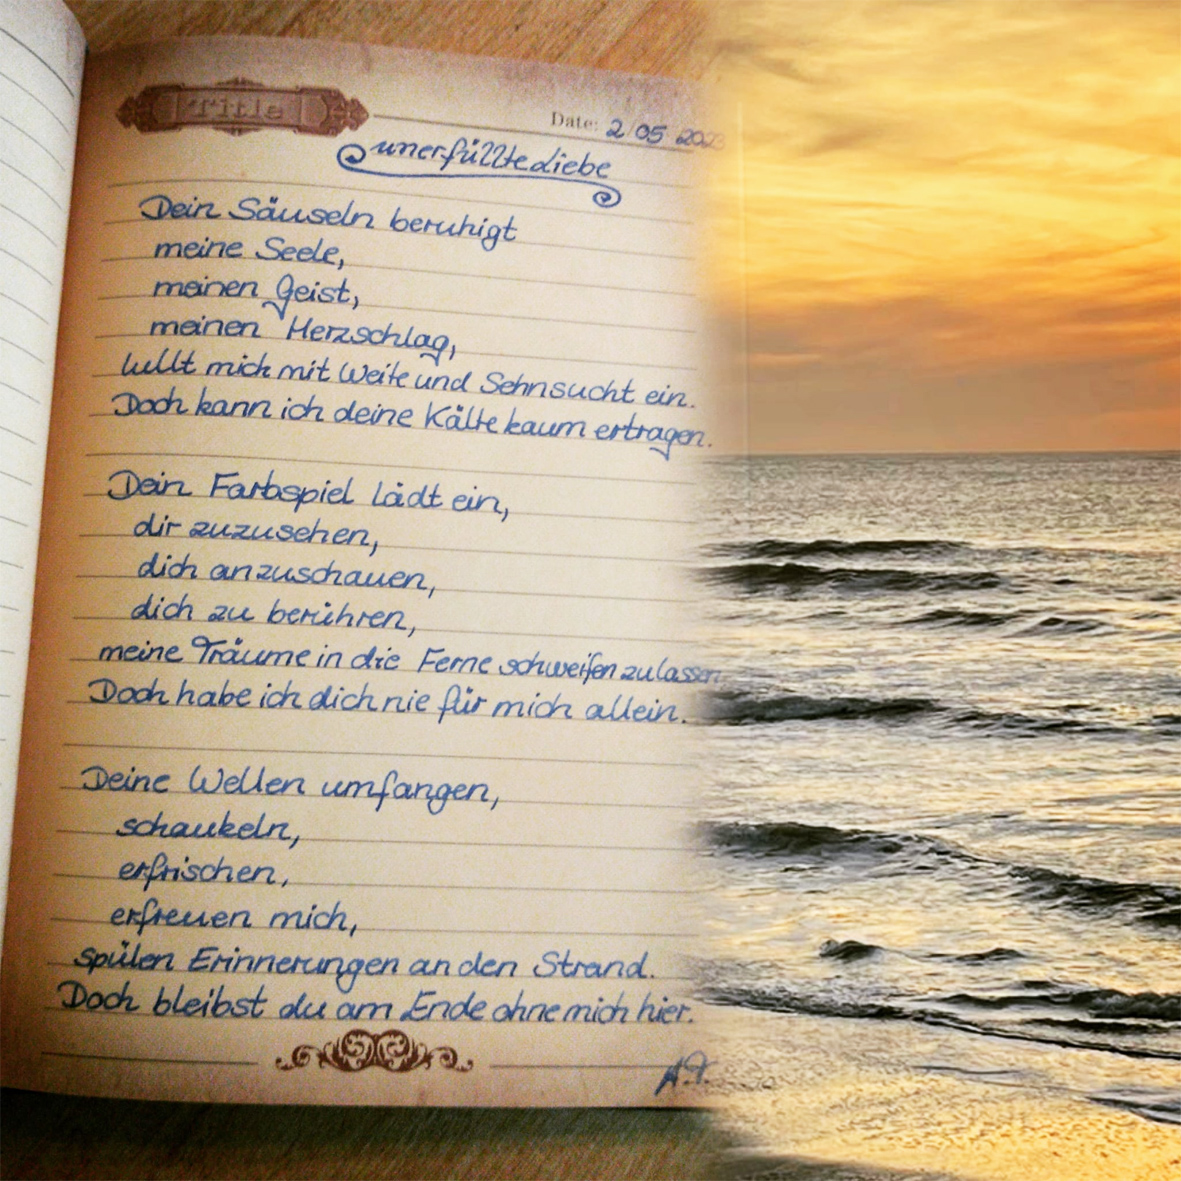 Title
Date: 2/05 2023
unerfüllte Liebe
Dein Säuseln beruhigt
meine Seele,
meinen Geist,
meinen Herzschlag,
lullt mich mit Weite und Sehnsucht ein.
Doch kann ich deine Kälte kaum ertragen.
Dein Farbspiel lädt ein,
dir zuzusehen,
dich anzuschauen,
dich zu berühren,
meine Träume in die Ferne schweifen zu lassen.
Doch habe ich dich nie für mich allein.
Deine Wellen umfangen,
schaukeln,
erfrischen,
erfreuen mich,
spülen Erinnerungen an den Strand.
Doch bleibst du am Ende ohne mich hier.